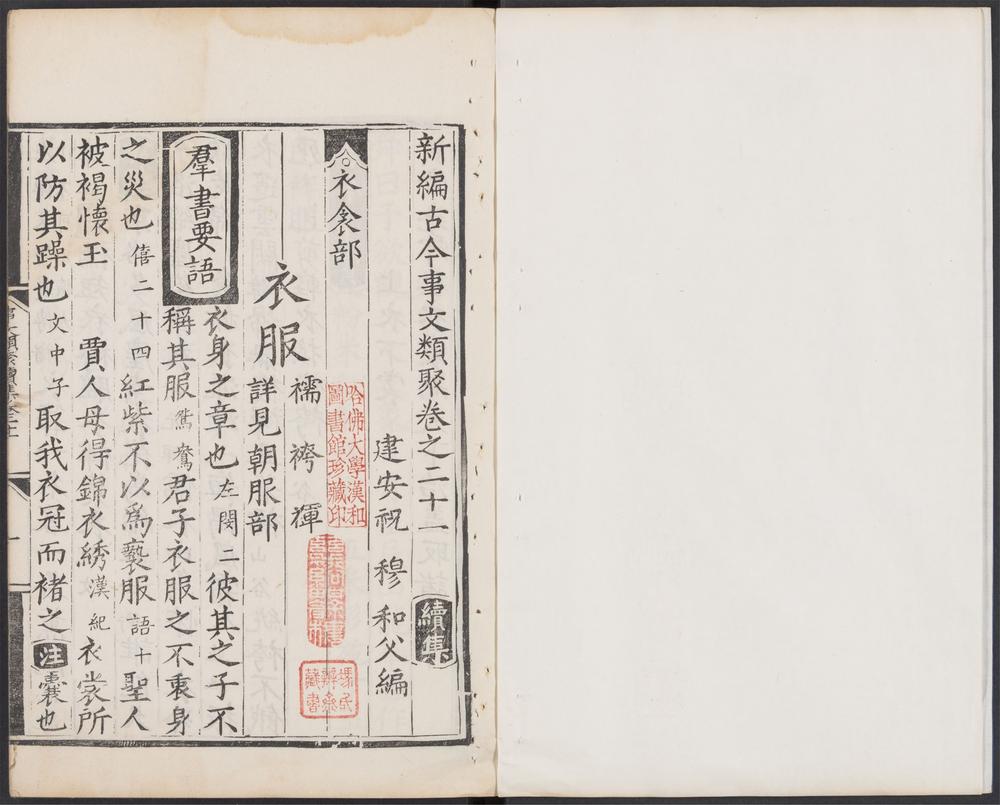 新編古今事文類聚卷之二十一 續集
建安祝 穆 和父編
衣衾部
哈佛大學漢和
圖書館珍藏印
襦 袴 褌
衣服 詳見朝服部
羣書要語 衣身之章也左閔二彼其之子不
稱其服鴛鴦君子衣服之不衷身
之災也僖二十四紅紫不以爲褻服語十聖人
被褐懷玉 賈人母得錦衣綉漢紀衣裳所
以防其躁也文中子取我衣冠而褚之注囊也